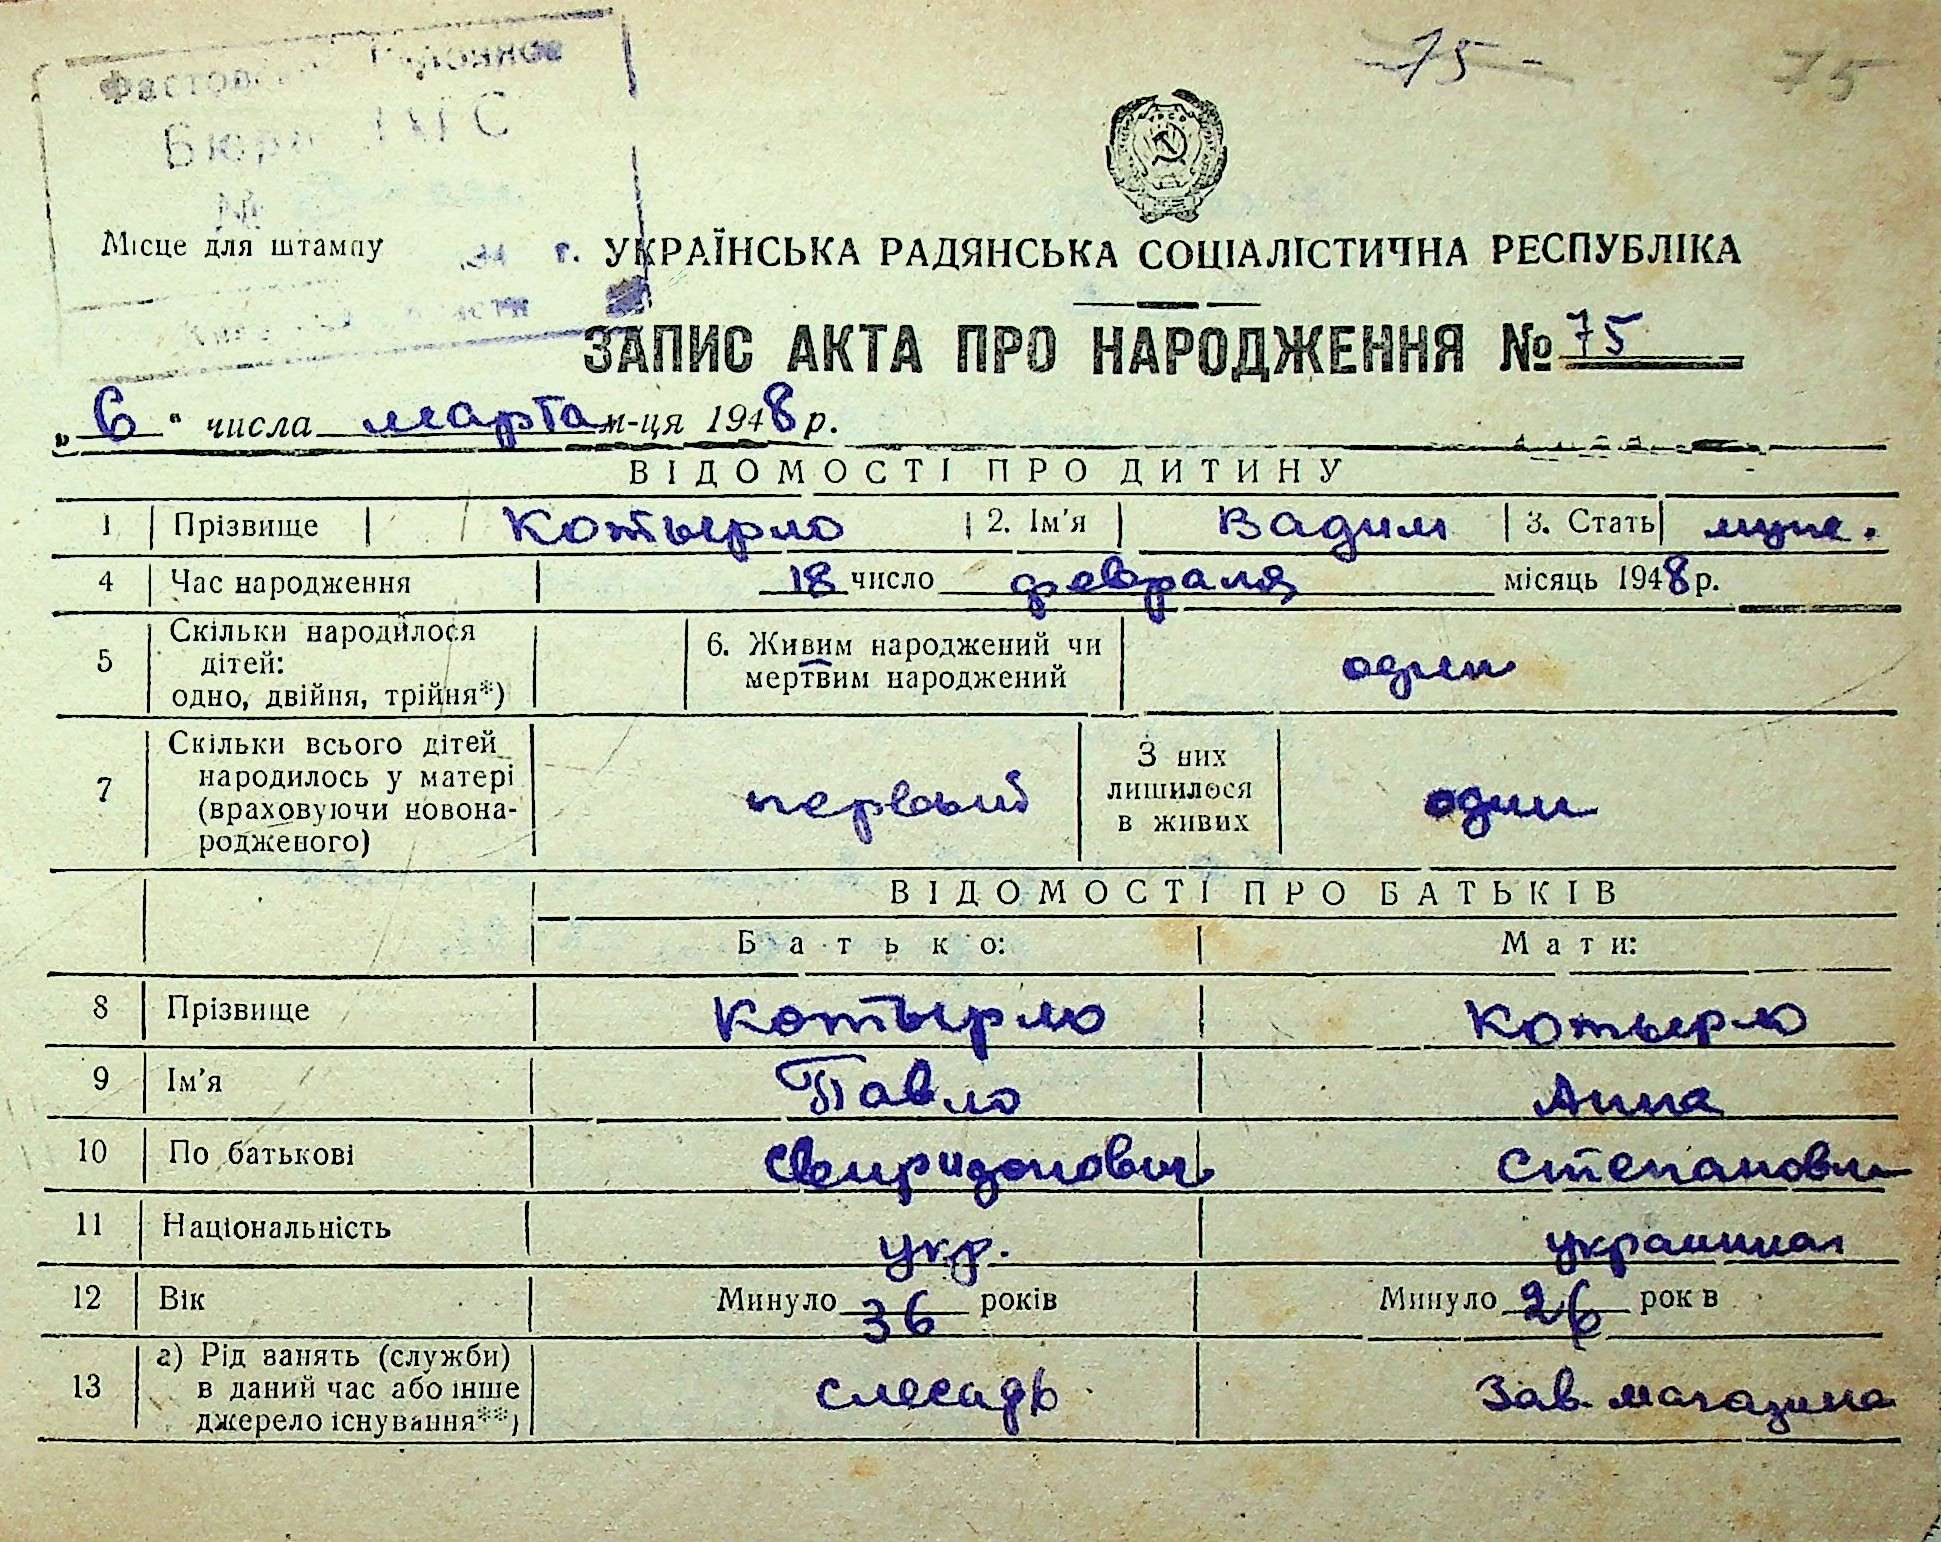 75 75
Бюро ЗАГС
№
Місце для штампу
г. УКРАЇНСЬКА РАДЯНСЬКА СОЦІАЛІСТИЧНА РЕСПУБЛІКА
ЗАПИС АКТА ПРО НАРОДЖЕННЯ № 75
„ 6 “ числа марта м-ця 1948 р.
ВІДОМОСТІ ПРО ДИТИНУ
1 Прізвище Котырло 2. Ім'я Вадим 3. Стать муж.
4 Час народження 18 число февраля місяць 1948 р.
5 Скільки народилося дітей: одно, двійня, трійня*) 6. Живим народжений чи мертвим народжений один
7 Скільки всього дітей народилось у матері (враховуючи новона-родженого) первый З них лишилося в живих один
ВІДОМОСТІ ПРО БАТЬКІВ
Батько: Мати:
8 Прізвище Котырло Котырло
9 Ім'я Павло Анна
10 По батькові Свиридонович Степановн
11 Національність укр. украинка
12 Вік Минуло 36 років Минуло 26 рок в
13 а) Рід занять (служби) в даний час або інше джерело існування**) слесарь Зав. магазина